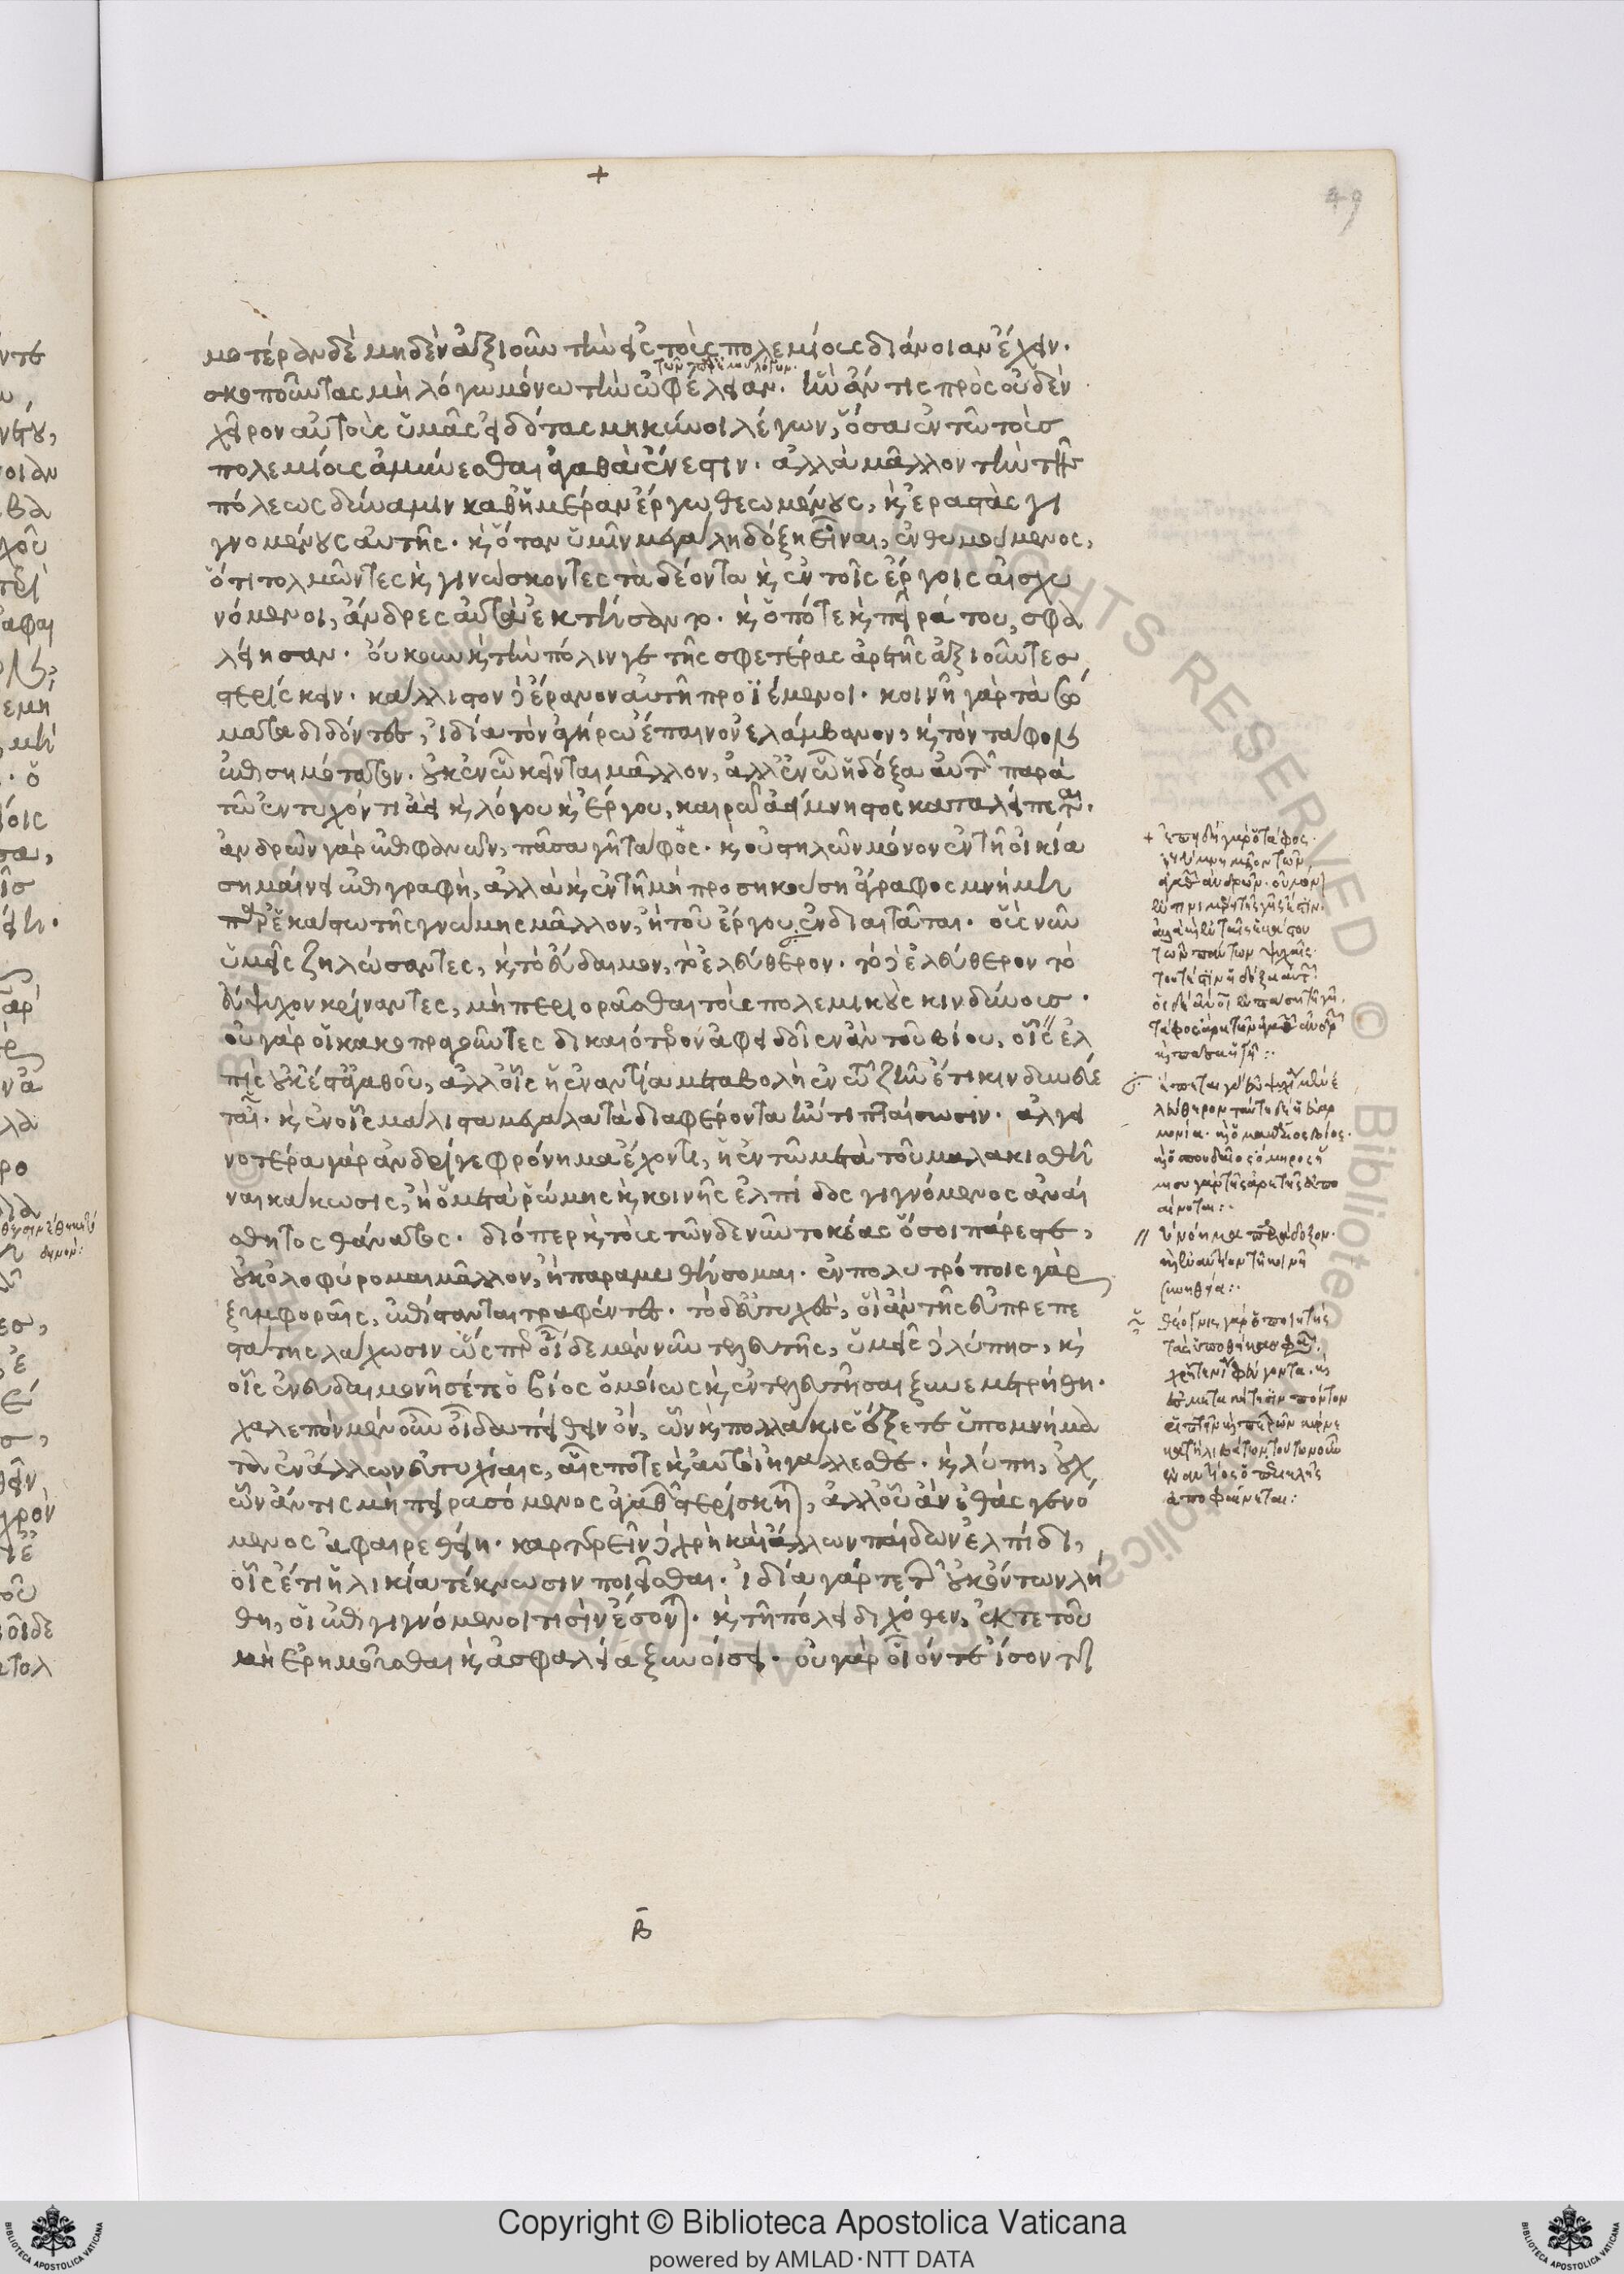 μοτέραν δὲ μηδὲν ἀξιοῦν τὴν ἐς τοὺς πολεμίους διάνοιαν ἔχειν·
σκοποῦντας μὴ λόγω μόνω τὴν ὠφέλειαν· ἣν ἄν τις πρὸς οὐδὲν
χεῖρον αὐτοὺς ὑμᾶς εἰδότας μηκύνοι λέγων, ὅσα ἐν τῶ τοὺσ
πολεμίους ἀμύνεσθαι ἀγαθὰ ἔνεστιν· ἀλλὰ μᾶλλον τὴν τῆς
πόλεως δύναμιν καθ' ἡμέραν ἔργω θεωμένους, καὶ ἐραστὰς γι
γνομένους αὐτῆς· καὶ ὅταν ὑμῖν μεγάλη δόξη εἶναι, ἐνθυμουμένους,
ὅτι τολμῶντες καὶ γινώσκοντες τὰ δέοντα καὶ ἐν τοῖς ἔργοις αἰσχυ
νόμενοι, ἄνδρες αὐτὰ ἐκτήσαντο· καὶ ὁπότε καὶ πείρα του, σφα
λείησαν· οὐκοῦν καὶ τὴν πόλιν γε τῆς σφετέρας ἀρετῆς ἀξιοῦντεσ
στερίσκειν· κάλλιστον δὲ ἔρανον αὐτῆ προϊέμενοι· κοινῆ γὰρ τὰ σώ
ματα διδόντες, ἰδία τὸν ἀγήρω ἔπαινον ἐλάμβανον, καὶ τὸν τάφον
ἐπισημότατον· οὐκ ἐν ὧ κεῖνται μᾶλλον, ἀλλ' ἐν ὧ ἡ δόξα αὐτῶν παρὰ
τῶ ἐντυχόντι ἀεὶ καὶ λόγου καὶ ἔργου, καιρῶ ἀείμνηστος καταλείπεται·
ἀνδρῶν γὰρ ἐπιφανῶν, πᾶσα γῆ τάφος· καὶ οὐ στηλῶν μόνον ἐν τῆ οἰκία
σημαίνει ἐπιγραφὴ, ἀλλὰ καὶ ἐν τῆ μὴ προσηκούση ἄγραφος μνήμη
παρ' ἑκάστω τῆς γνώμης μᾶλλον, ἢ τοῦ ἔργου ἐνδιαιτᾶται· οὓς νῦν
ὑμεῖς ζηλώσαντες, καὶ τὸ εὔδαιμον, τὸ ἐλεύθερον· τὸ δὲ ἐλεύθερον τὸ
εὔψυχον κρίναντες, μὴ περιορᾶσθαι τοὺς πολεμικοὺς κινδύνουσ·
οὐ γὰρ οἱ κακοπραγοῦντες δικαιότερον ἀφειδοῖεν ἂν τοῦ βίου, οἷς ἐλ
πὶς οὐκ ἔστ' ἀγαθοῦ, ἀλλ' οἷς ἡ ἐναντία μεταβολὴ ἐν τῶ ζῆν ἔτι κινδυνεύε
ται· καὶ ἐν οἷς μάλιστα μεγάλα τὰ διαφέροντα ἤν τι πταίσωσιν· ἀλγει
νοτέρα γὰρ ἀνδρί γε φρόνημα ἔχοντι, ἡ ἐν τῶ μετὰ τοῦ μαλακισθῆ
ναι κάκωσις, ἢ ὁ μετὰ ῥώμης καὶ κοινῆς ἐλπίδος γιγνόμενος ἀναί
σθητος θάνατος· διόπερ καὶ τοὺς τῶνδε νῦν τοκέας ὅσοι πάρεστε,
οὐκ ὀλοφύρομαι μᾶλλον, ἢ παραμυθήσομαι· ἐν πολυτρόποις γὰρ
ξυμφοραῖς, ἐπίστανται τραφέντες· τὸ δ' εὐτυχὲς, οἳ ἂν τῆς εὐπρεπε
στάτης λάχωσιν ὥσπερ οἵδε μὲν νῦν τελευτῆς, ὑμεῖς δὲ λύπησ, καὶ
οἷς ἐνευδαιμονῆσέ τε ὁ βίος ὁμοίως καὶ ἐντελευτῆσαι ξυνεμετρήθη·
χαλεπὸν μὲν οὖν οἶδα πείθειν ὂν, ὧν καὶ πολλάκις ἕξετε ὑπομνήμα
τα ἐν ἄλλων εὐτυχίαις, αἷς ποτε καὶ αὐτοὶ ἠγάλλεσθε· καὶ λύπη, οὐχ
ὧν ἄν τις μὴ πειρασόμενος ἀγαθῶν στερίσκηται, ἀλλ' οὗ ἂν ἐθὰς γενό
μενος ἀφαιρεθείη· καρτερεῖν δὲ χρὴ καὶ ἄλλων παίδων ἐλπίδι,
οἷς ἔτι ἡλικία τέκνωσιν ποιεῖσθαι· ἰδία γάρ τε τῶν οὐκ ὄντων λή
θη, οἱ ἐπιγιγνόμενοι τισὶν ἔσονται· καὶ τῆ πόλει διχόθεν, ἔκ τε τοῦ
μὴ ἐρημοῦσθαι καὶ ἀσφαλεία ξυνοίσει· οὐ γὰρ οἷόν τε ἴσον τι
+ ἐπειδὴ γὰρ ὁ τάφος
τουτέστιν ἡ δόξα αὐτῶν
// νόημα παράδοξον·
καὶ ἐναντίον τῆ κοινῆ
συνηθεία:
θέογνις γὰρ ὁ ποιητὴς
ἐναντίως ὁ περικλῆς
ἀποφαίνεται:
β
49
Copyright © Biblioteca Apostolica Vaticana
powered by AMLAD·NTT DATA